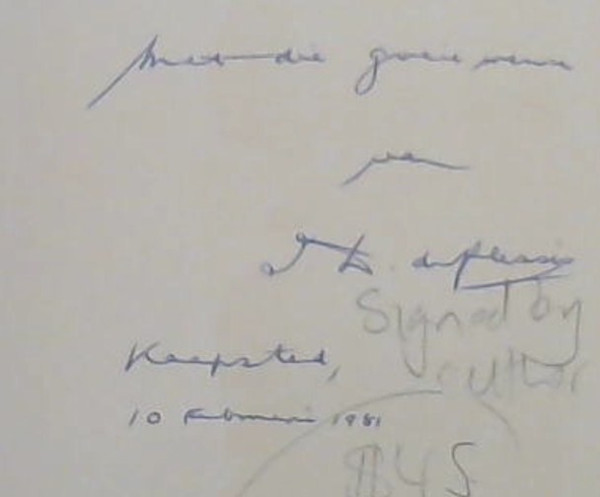 Met die goeie wense
van
I D du Plessis
Signed by
author
Kaapstad,
10 Februarie 1981
$45